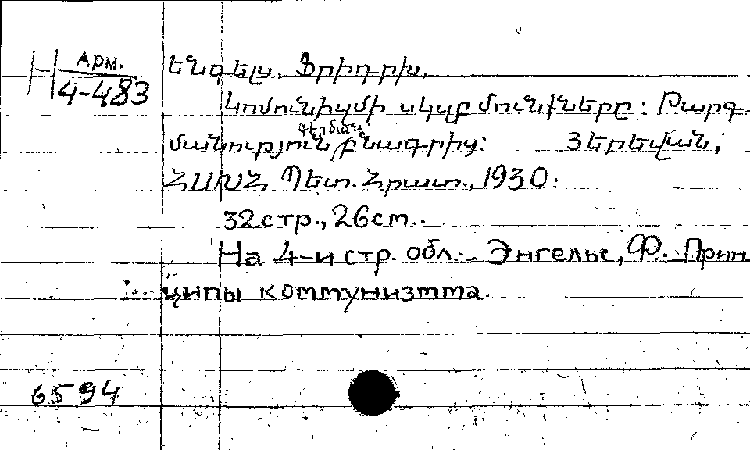 Н Арм.
4-483
Ենգելս, Ֆրիդրիխ.
Կոմունիզմի սկզբմունքները: Թարգ-
մանություն գերման. բնագրից: Յերեվան,
ՀՍԽՀ Պետ. Հրատ., 1930.
32 стр., 26 см.
На 4-и стр. обл.- Энгельс, Ф. Прин
ципы коммунизма.
6594